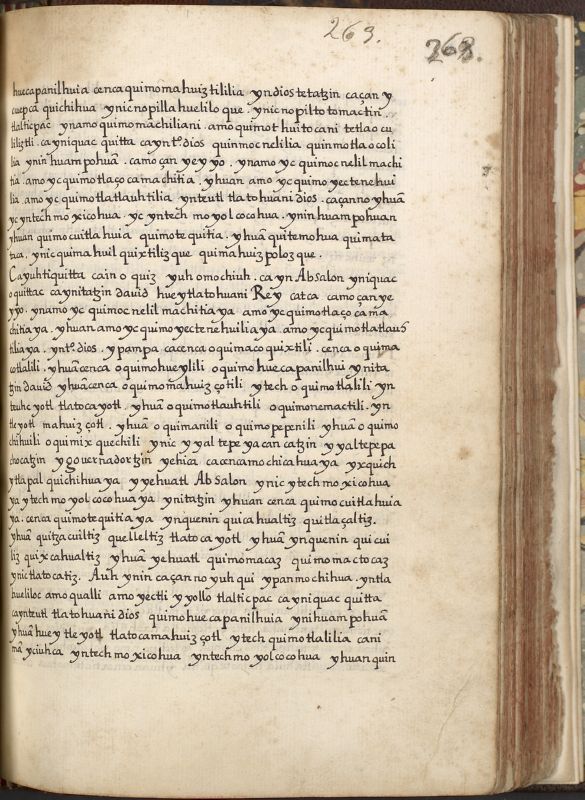 263.
268.
huecapanilhuia cenca quimomahuiztililia yn dios tetatzin caçan y
cuepca quichihua ynic nopilla huelilo que . ynic no pilto tomactin .
tlalticpac ynamo quimomachiliani . amo quimot huitocani tetlaocu
liliztli . ca yniquac quitta ca yn tº. dios quinmocnelilia quinmotlaocoli
lia ynin huampohuã . camo çan ye y yo . ynamo yc quimocnelilmachi
tia . amo yc quimotlaçocamachitia . yhuan amo yc quimoyectenehui
lia amo yc quimotlatlauhtilia ynteutl tlatohuani dios . caçanno yhuã
yc yntech moxicohua . yc yntech moyolcocohua . ynin huampohuan
yhuan quimocuitlahuia quimotequitia . yhuã quitemohua quimata
taca . ynic quimahuilquixtilizque quimahuizpolozque .
Ca yuhtiquitta cain oquiz yuh omochiuh . ca yn Absalon yniquac
oquittac ca ynitatzin dauid hueytlatohuani Rey catca camo çan ye
y yo . ynamo yc quimocnelilmachitiaya . amo yc quimotlaçocama
chitiaya . yhuan amo yc quimoyectenehuiliaya . amo yc quimotlatlauh
tiliaya . yn tº. dios . ypampa cacenca oquimacoquixtili . cenca oquima
cotlalili . yhuã cenca oquimohueylili oquimohuecapanilhui ynita
tzin dauid yhuã cenca oquimomahuizçotili ytech oquimotlalili yn
teuhcyotl tlatocayotl . yhuã oquimotlauhtili oquimonemactili . yn
tleyotl mahuizçotl . yhuã oquimanili oquimopepenili yhuã oquimo
chihuili oquimixquechili ynic yyaltepeyacancatzin yyaltepepa
chocatzin ygouernadortzin yehica ca cenca mochicahuaya yxquich
ytlapal quichihuaya yyehuatl Absalon ynic ytech moxicohua
ya ytech moyolcocohuaya ynitatzin yhuan cenca quimocuitlahuia
ya . cenca quimotequitiaya ynquenin quicahualtiz quitlaçaltiz .
yhuã quitzacuiltiz quelleltiz tlatocayotl yhuã ynquenin quicui
liz quixcahualtiz yhuã yehuatl quimomacaz quimomactocaz
ynic tlatocatiz . Auh ynin caçanno yuhqui ypanmochihua . yntla
hueliloc amo qualli amo yectli y yollo tlalticpac ca yniquac quitta
ca ynteutl tlatohuani dios quimohuecapanilhuia ynihuampohuã
yhuã huey tleyotl tlatoca mahuizçotl ytech quimotlalilia cani
mã yciuhca yntech moxicohua yntech moyolcocohua yhuan quin